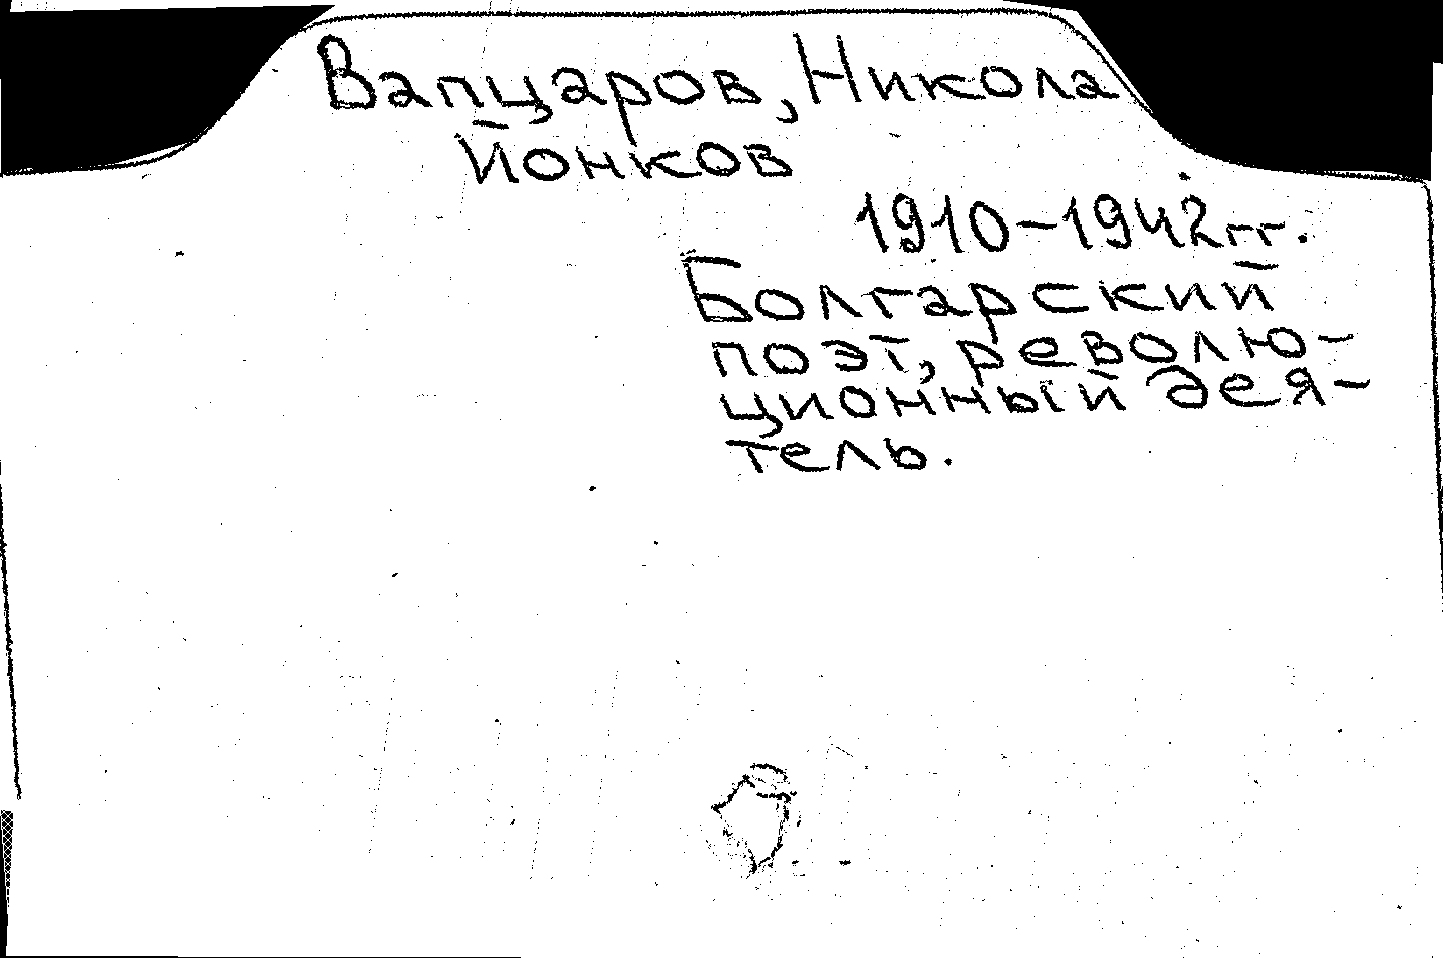 Вапцаров, Никола
Йонков
1910-1942 гг.
Болгарский
поэт, револю-
ционный дея-
тель.